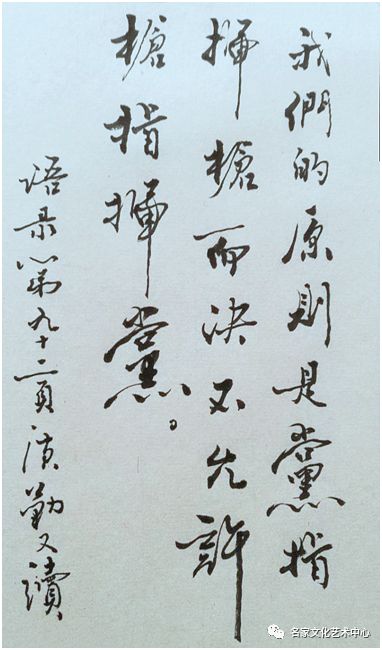 我們的原則是黨指
揮槍而決不允許
槍指揮黨。
語录第九十二頁勤又讀
名家文化艺术中心